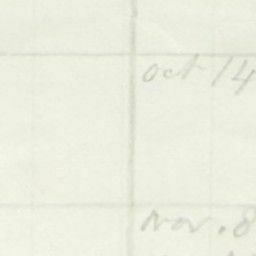 Oct 14
Nov. 8